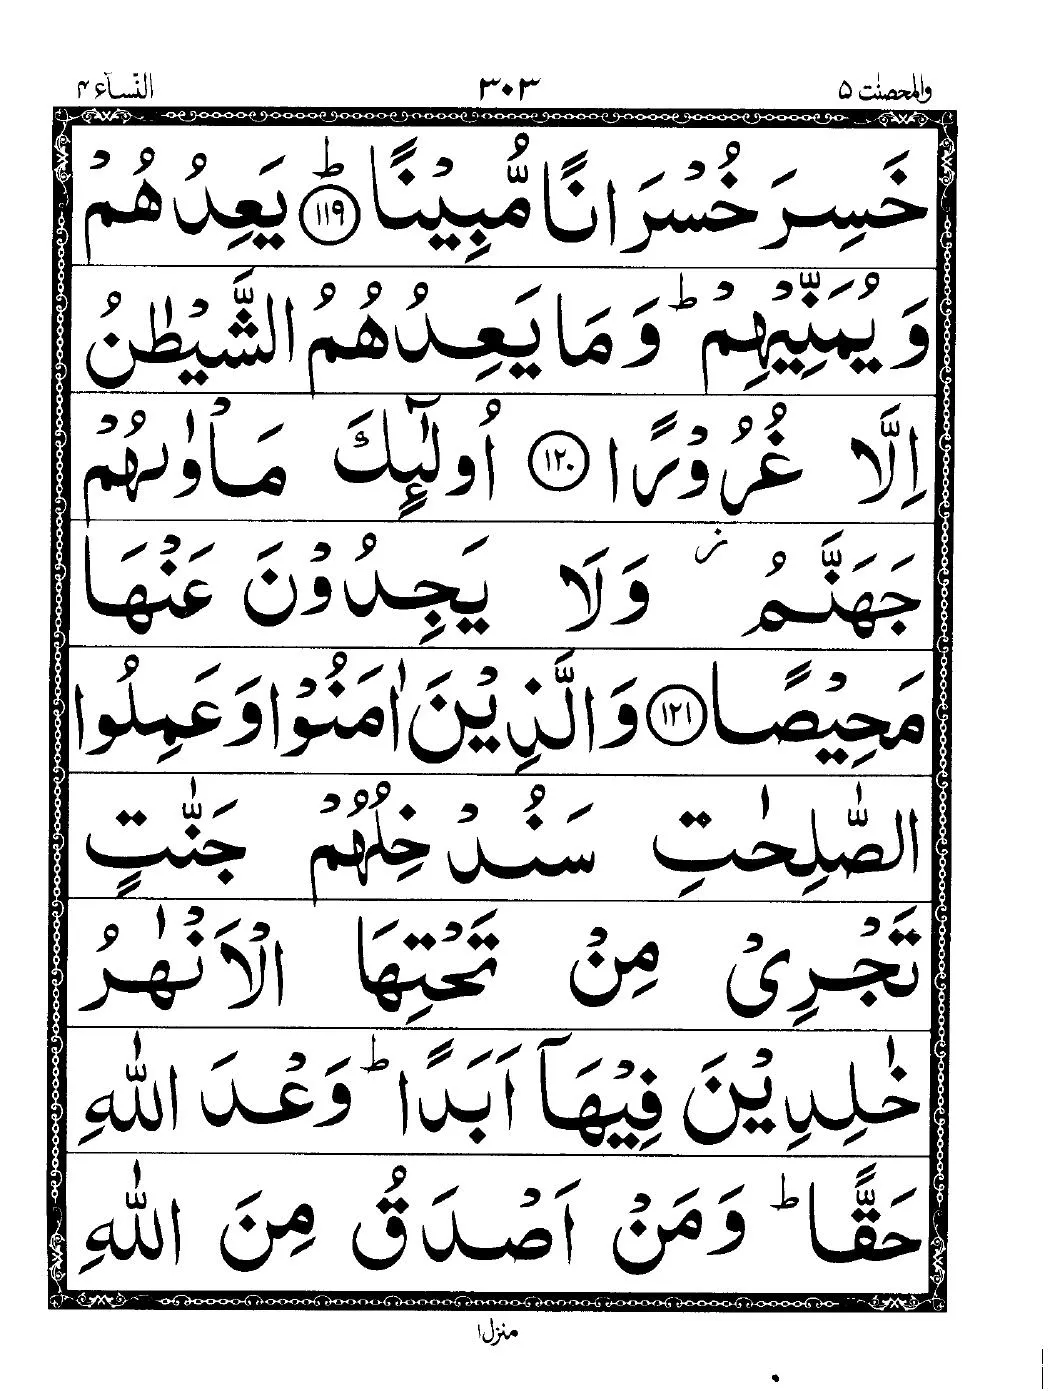 والمحصنٰت ۵ ۳۰۳ النّسآء ۴
خَسِرَ خُسْرَانًا مُّبِيْنًا ؕ ﴿۱۱۹﴾ يَعِدُهُمْ
وَيُمَنِّيْهِمْ ؕ وَمَا يَعِدُهُمُ الشَّيْطٰنُ
اِلَّا غُرُوْرًا ﴿۱۲۰﴾ اُولٰٓئِكَ مَاْوٰىهُمْ
جَهَنَّمُ ز وَلَا يَجِدُوْنَ عَنْهَا
مَحِيْصًا ﴿۱۲۱﴾ وَالَّذِيْنَ اٰمَنُوْا وَعَمِلُوا
الصّٰلِحٰتِ سَنُدْخِلُهُمْ جَنّٰتٍ
تَجْرِىْ مِنْ تَحْتِهَا الْاَنْهٰرُ
خٰلِدِيْنَ فِيْهَآ اَبَدًا ؕ وَعْدَ اللّٰهِ
حَقًّا ؕ وَمَنْ اَصْدَقُ مِنَ اللّٰهِ
منزل ۱